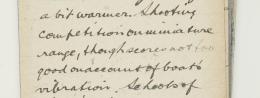 a bit warmer. Shooting
competition on miniature
range, though scores not too
good on account of boat's
vibration. Schools of